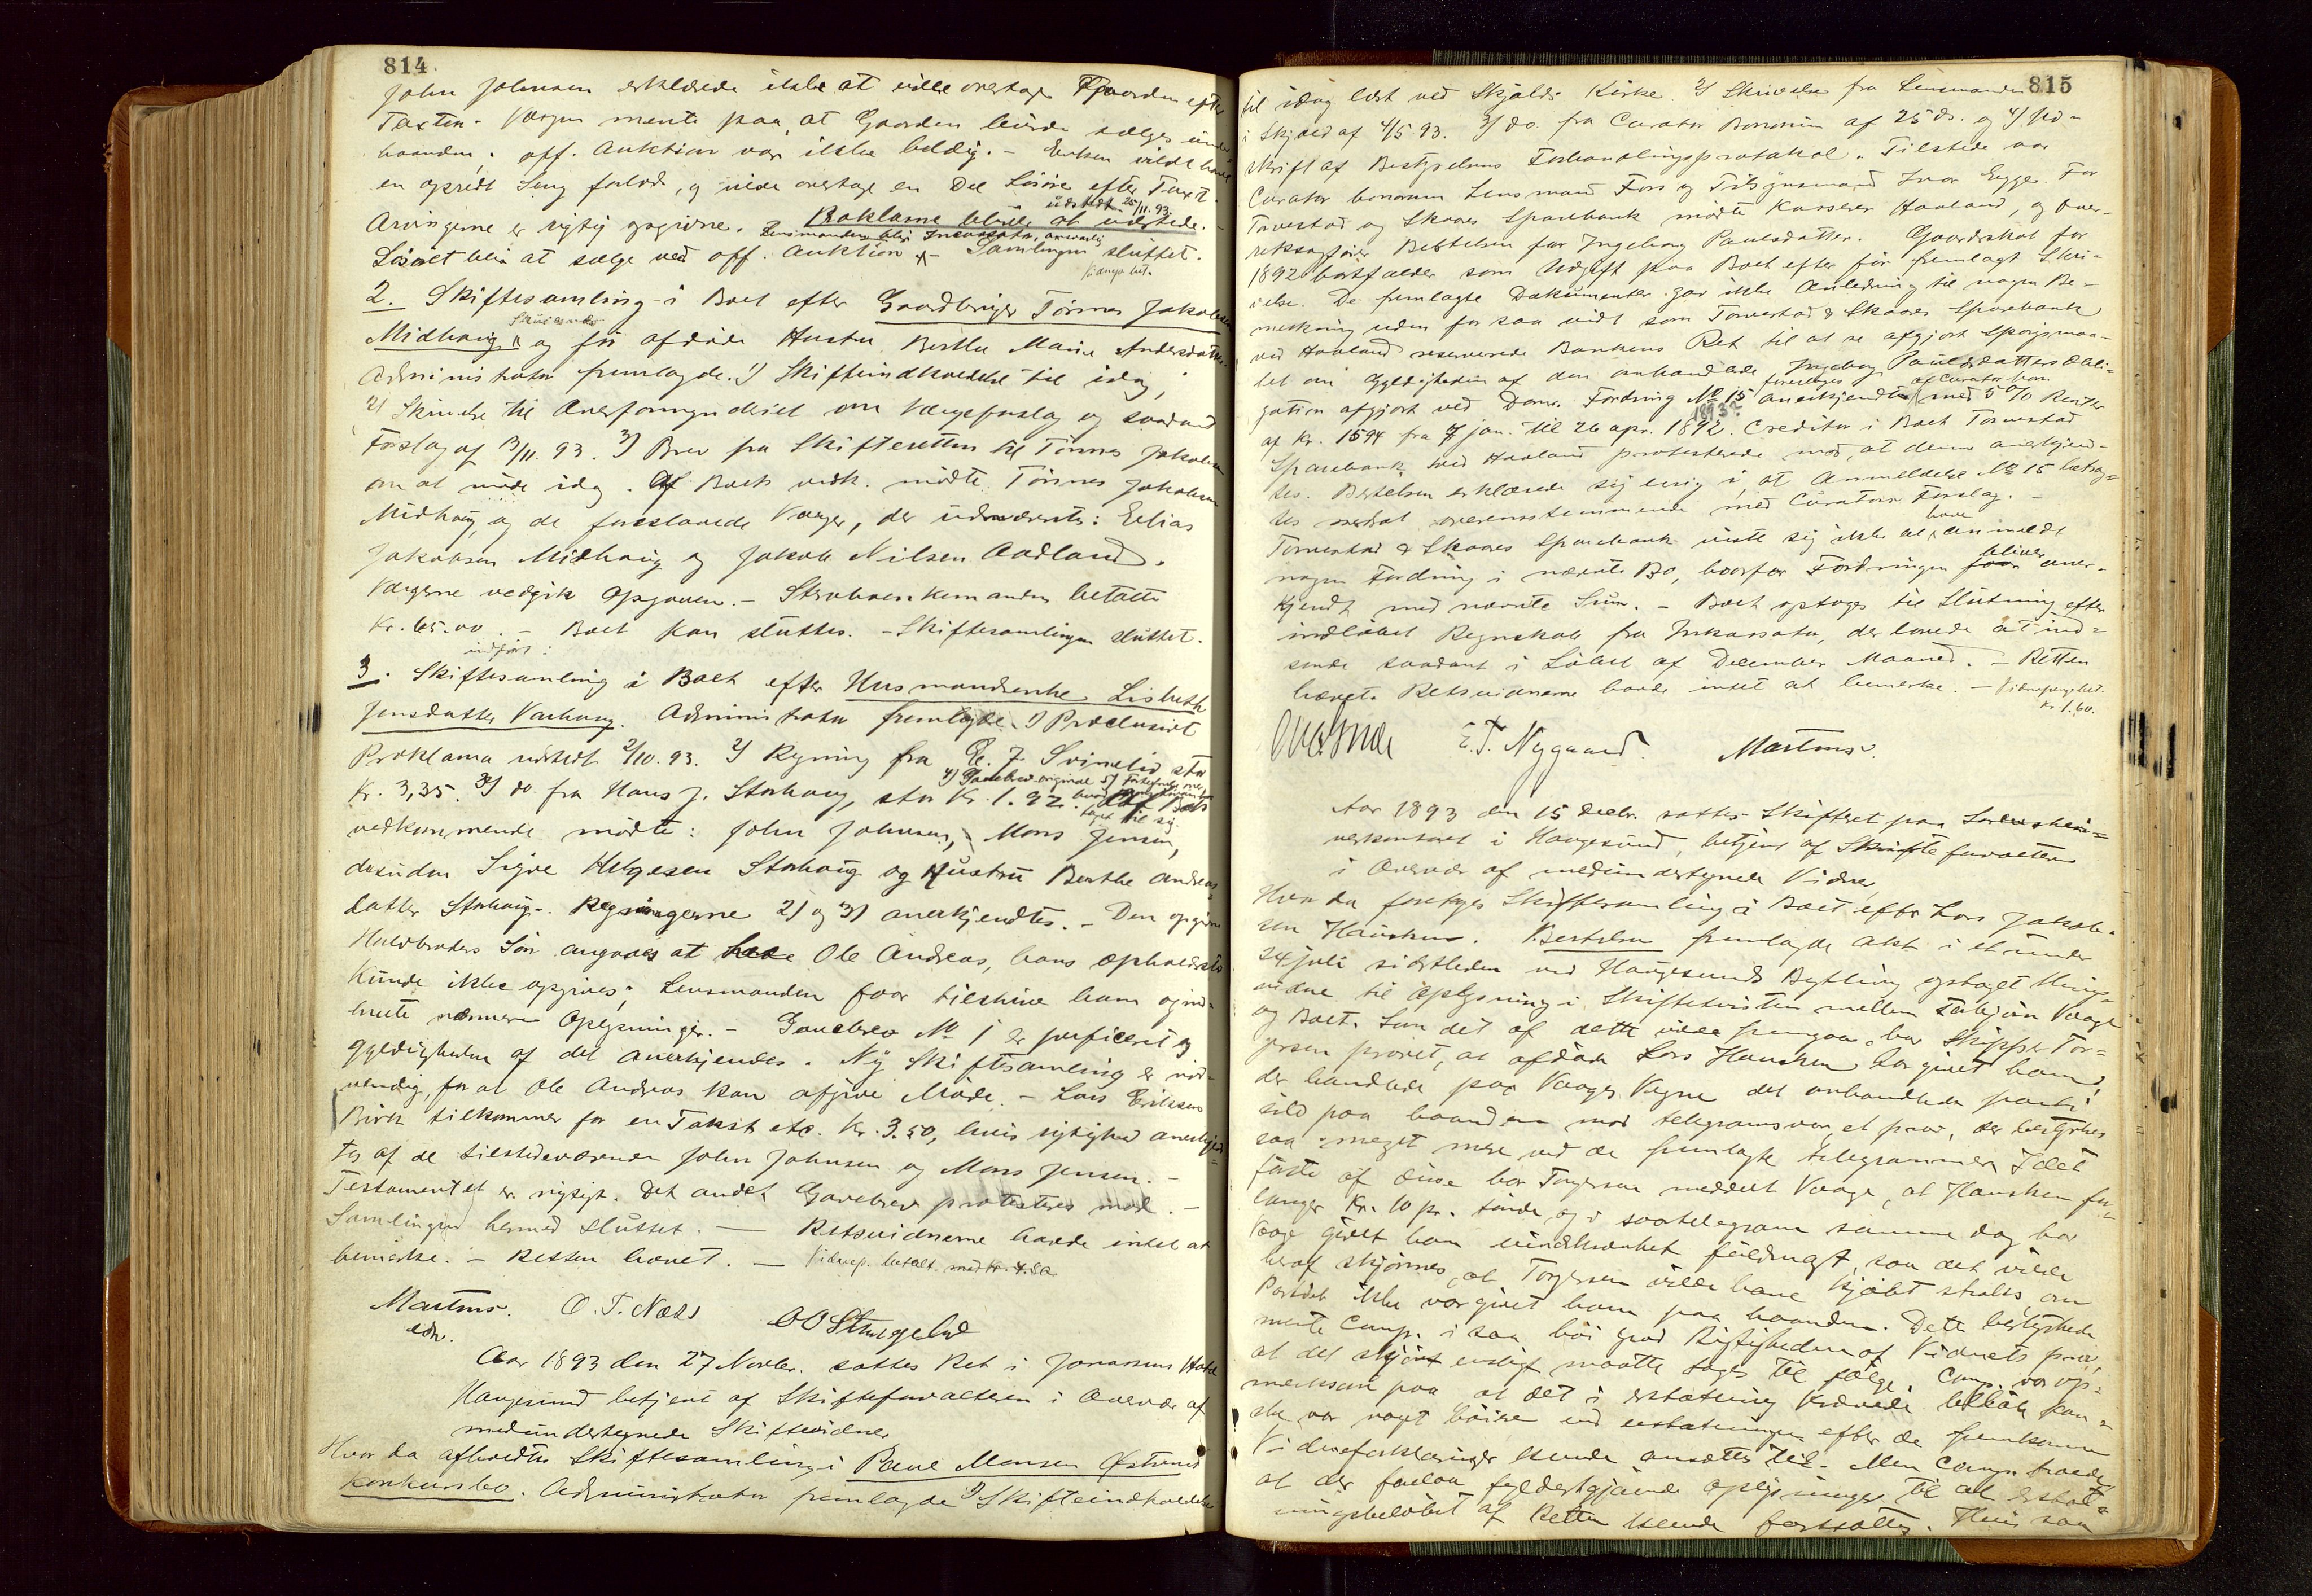 814
John Johnsen erklærede ikke at ville overtage Gaarden efter
Taxten. Værgen mente paa, at Gaarden burde sælges under-
haanden; off. Auktion var ikke heldig. - Enken vilde have
en opredt Seng forlods, og vilde overtage en Del Løsøre efter Taxt.
udstedt 25/11. 93.
Arvingerne er rigtig opgivne. Proklama bliver at udstede. -
Lensmanden blir Incassator, ansvarlig
Løsøret blir at sælge ved off. Auktion - Samlingen sluttet.
2. Skiftesamling i Boet efter Gaardbruger Tönnes Jakobsen
Midhaug og før afdøde Hustru Berthe Marie Andersdatter.
Administrator fremlagde: 1) Skifteindkaldelse til idag,
2) Skrivelse til Overformynderiet om Værgeforslag og saadant
Forslag af 13/11. 93. 3) Brev fra Skifteretten til Tönnes Jakobsen
om at møde idag. Af Boets vedk. mødte Tönnes Jakobsen
Midhaug, og de foreslaaede Værger, der udnævntes: Elias
Jakobsen Midhaug og Jakob Nilsen Aadland.
Værgerne vedgik Opgaven. - Stervboenkemanden betalte
Kr. 65.00. - Boet kan sluttes. - Skiftesamlingen sluttet.
indført:
3. Skiftesamling i Boet efter Husmandsenke Lisbeth
Jensdatter Varhaug. Administrator fremlagde. 1) Præclusivt
Proklama udstedt 2/10. 93. 2) Regning fra E. J. Svinelid stor
4) Gavebrev original 5) Fortegnelse over
Kr. 3,35. 3) do fra Hans J. Storhaug, stor Kr. 1.92. Af Boets
taget til sig.
vedkommende mødte: John Johnsen, Mons Jensen,
desuden Sigve Helgesen Storhaug og Hustru Berthe Andreas-
datter Storhaug. Regningerne 2) og 3) anerkjendtes. - Den opgivne
Halvbroders Søn angaves at hede Ole Andreas, hans opholdssted
kunde ikke opgives; Lensmanden faar tilskrive ham og ind-
hente nærmere Oplysninger. - Gavebrev No 1 er perficeret og
gyldigheden af det anerkjendes. Ny Skiftesamling er nød-
vendig, for at Ole Andreas kan afgive Møde. - Lars Eriksen
Birk tilkommer for en Takst etc. Kr. 3.50, hvis rigtighed anerkjend-
tes af de tilstedeværende John Johnsen og Mons Jensen. -
Testamentet er rigtigt. Det andet Gavebrev protesteres mod. -
Samlingen hermed sluttet. - Retsvidnerne havde intet at
bemærke. - Retten hævet. - Vidnep. betalt med Kr.
Martens. O. T. Næss
Aar 1893 den 27 Novbr. sattes Ret i Jonassens Hotel
Haugesund betjent af Skifteforvalteren i Overvær af
medundertegnede Skiftevidner
Hvor da afholdtes Skiftesamling i Paul Monsen Østensø
konkursbo. Administrator fremlagde 1) Skifteindkaldelse
815
til idag læst ved Skjolds Kirke. 2) Skrivelse fra Lensmanden
i Skjold af 4/5 93. 3) do. fra Curator Bonorum af 25 ds. og 4) Ud-
skrift af Bestyrelsens Forhandlingsprotokol. Tilstede var
Curator bonorum Lensmand Foss og Tilsynsmand Ivar Egge. For
Torvestad og Skaare Sparebank mødte Kasserer Haaland, og Over-
retssagfører Bertelsen for Ingeborg Paulsdatter. Gaardskat for
1892 bortfalder som Udgift paa Boet efter før fremlagt Skri-
velse. De fremlagte Dokumenter gav ikke Anledning til nogen Be-
merkning uden for saa vidt som Torvestad & Skaare Sparebank
ved Haaland reserverede Bankens Ret til at se afgjort Spørgsmaa-
let om Gyldigheden af den omhandlede Ingeborg Paulsdatters Obli-
foreslages af Curator bon.
gation afgjort ved Dom. Fordring No 15 anerkjendt med 5 % Renter
1893?
af Kr. 1594 fra 7 jan. til 26 apr. 1892. Creditor i Boet Torvestad
Sparebank ved Haaland protesterede mod, at denne anerkjend-
tes. Bertelsen erklærede sig enig i, at Anmeldelse No 15 betrag-
tes overensstemmende med Curators Forslag. -
have
Torvestad & Skaare Sparebank viste sig ikke at anmeldt
bliver
nogen Fordring i nævnte Bo, hvorfor Fordringen aner-
kjendt med nævnte Sum. - Boet optages til Slutning efter
indløbet Regnskab fra Inkassator, der lovede at ind-
sende saadant i Løbet af December Maaned. - Retten
hævet. Retsvidnerne havde intet at bemerke. - Vidnepenge bet.
Kr. 1.60.
E. T. Nygaard. Martens.
Aar 1893 den 15 Decbr. sattes Skifteret paa Sorenskri-
verkontoret i Haugesund, betjent af Skifteforvalteren
i Overvær af medundertegnede Vidner,
Hvor da foretoges Skiftesamling i Boet efter Lars Jakob-
sen Hausken. Bertelsen fremlagde Akt i et under
24 juli sidstleden ved Haugesunds Bything optaget things-
vidne til Oplysning i Skiftetvisten mellem Torbjørn Vaage
og Boet. Som det af dette vilde fremgaa, har Skipper Tor-
gersen provet, at afdøde Lars Hausken har givet ham,
der handlede paa Vaages Vegne det omhandlede parti
sild paa haanden mod telegramsvar, et prov, der bestyrkes
saa meget mere ved de fremlagte telegrammer. I det
første af disse har Torgersen meddelt Vaage, at Hausken for-
langer Kr. 10 pr. tønde, og i svartelegram samme dag har
Vaage givet ham uindskrænket fuldmagt, saa det vilde
heraf skjønnes, at Torgersen vilde have kjøbt straks, om
Partiet ikke var givet ham paa haanden. Dette bestyrkede
mente Comp. i saa høi grad Rigtigheden af Vidnets prov,
at det skjønt enligt maatte tages til følge. Comp. var op-
merksom paa at det i erstatning krævede beløb kan-
ske var noget høiere end erstatningen efter de fremkomne
Vidneforklaringer kunde ansættes til. Men Comp. troede,
at der forelaa fyldestgjørende oplysninger til at erstat-
ningsbeløbet af Retten kunde fastsættes. Hvis saa